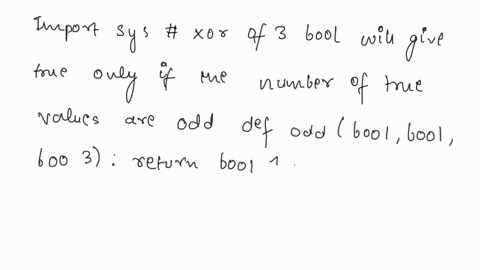 Import sys # xor of 3 bool will give
true only if the number of true
values are odd def odd (bool, bool,
boo 3) : return bool 1 .